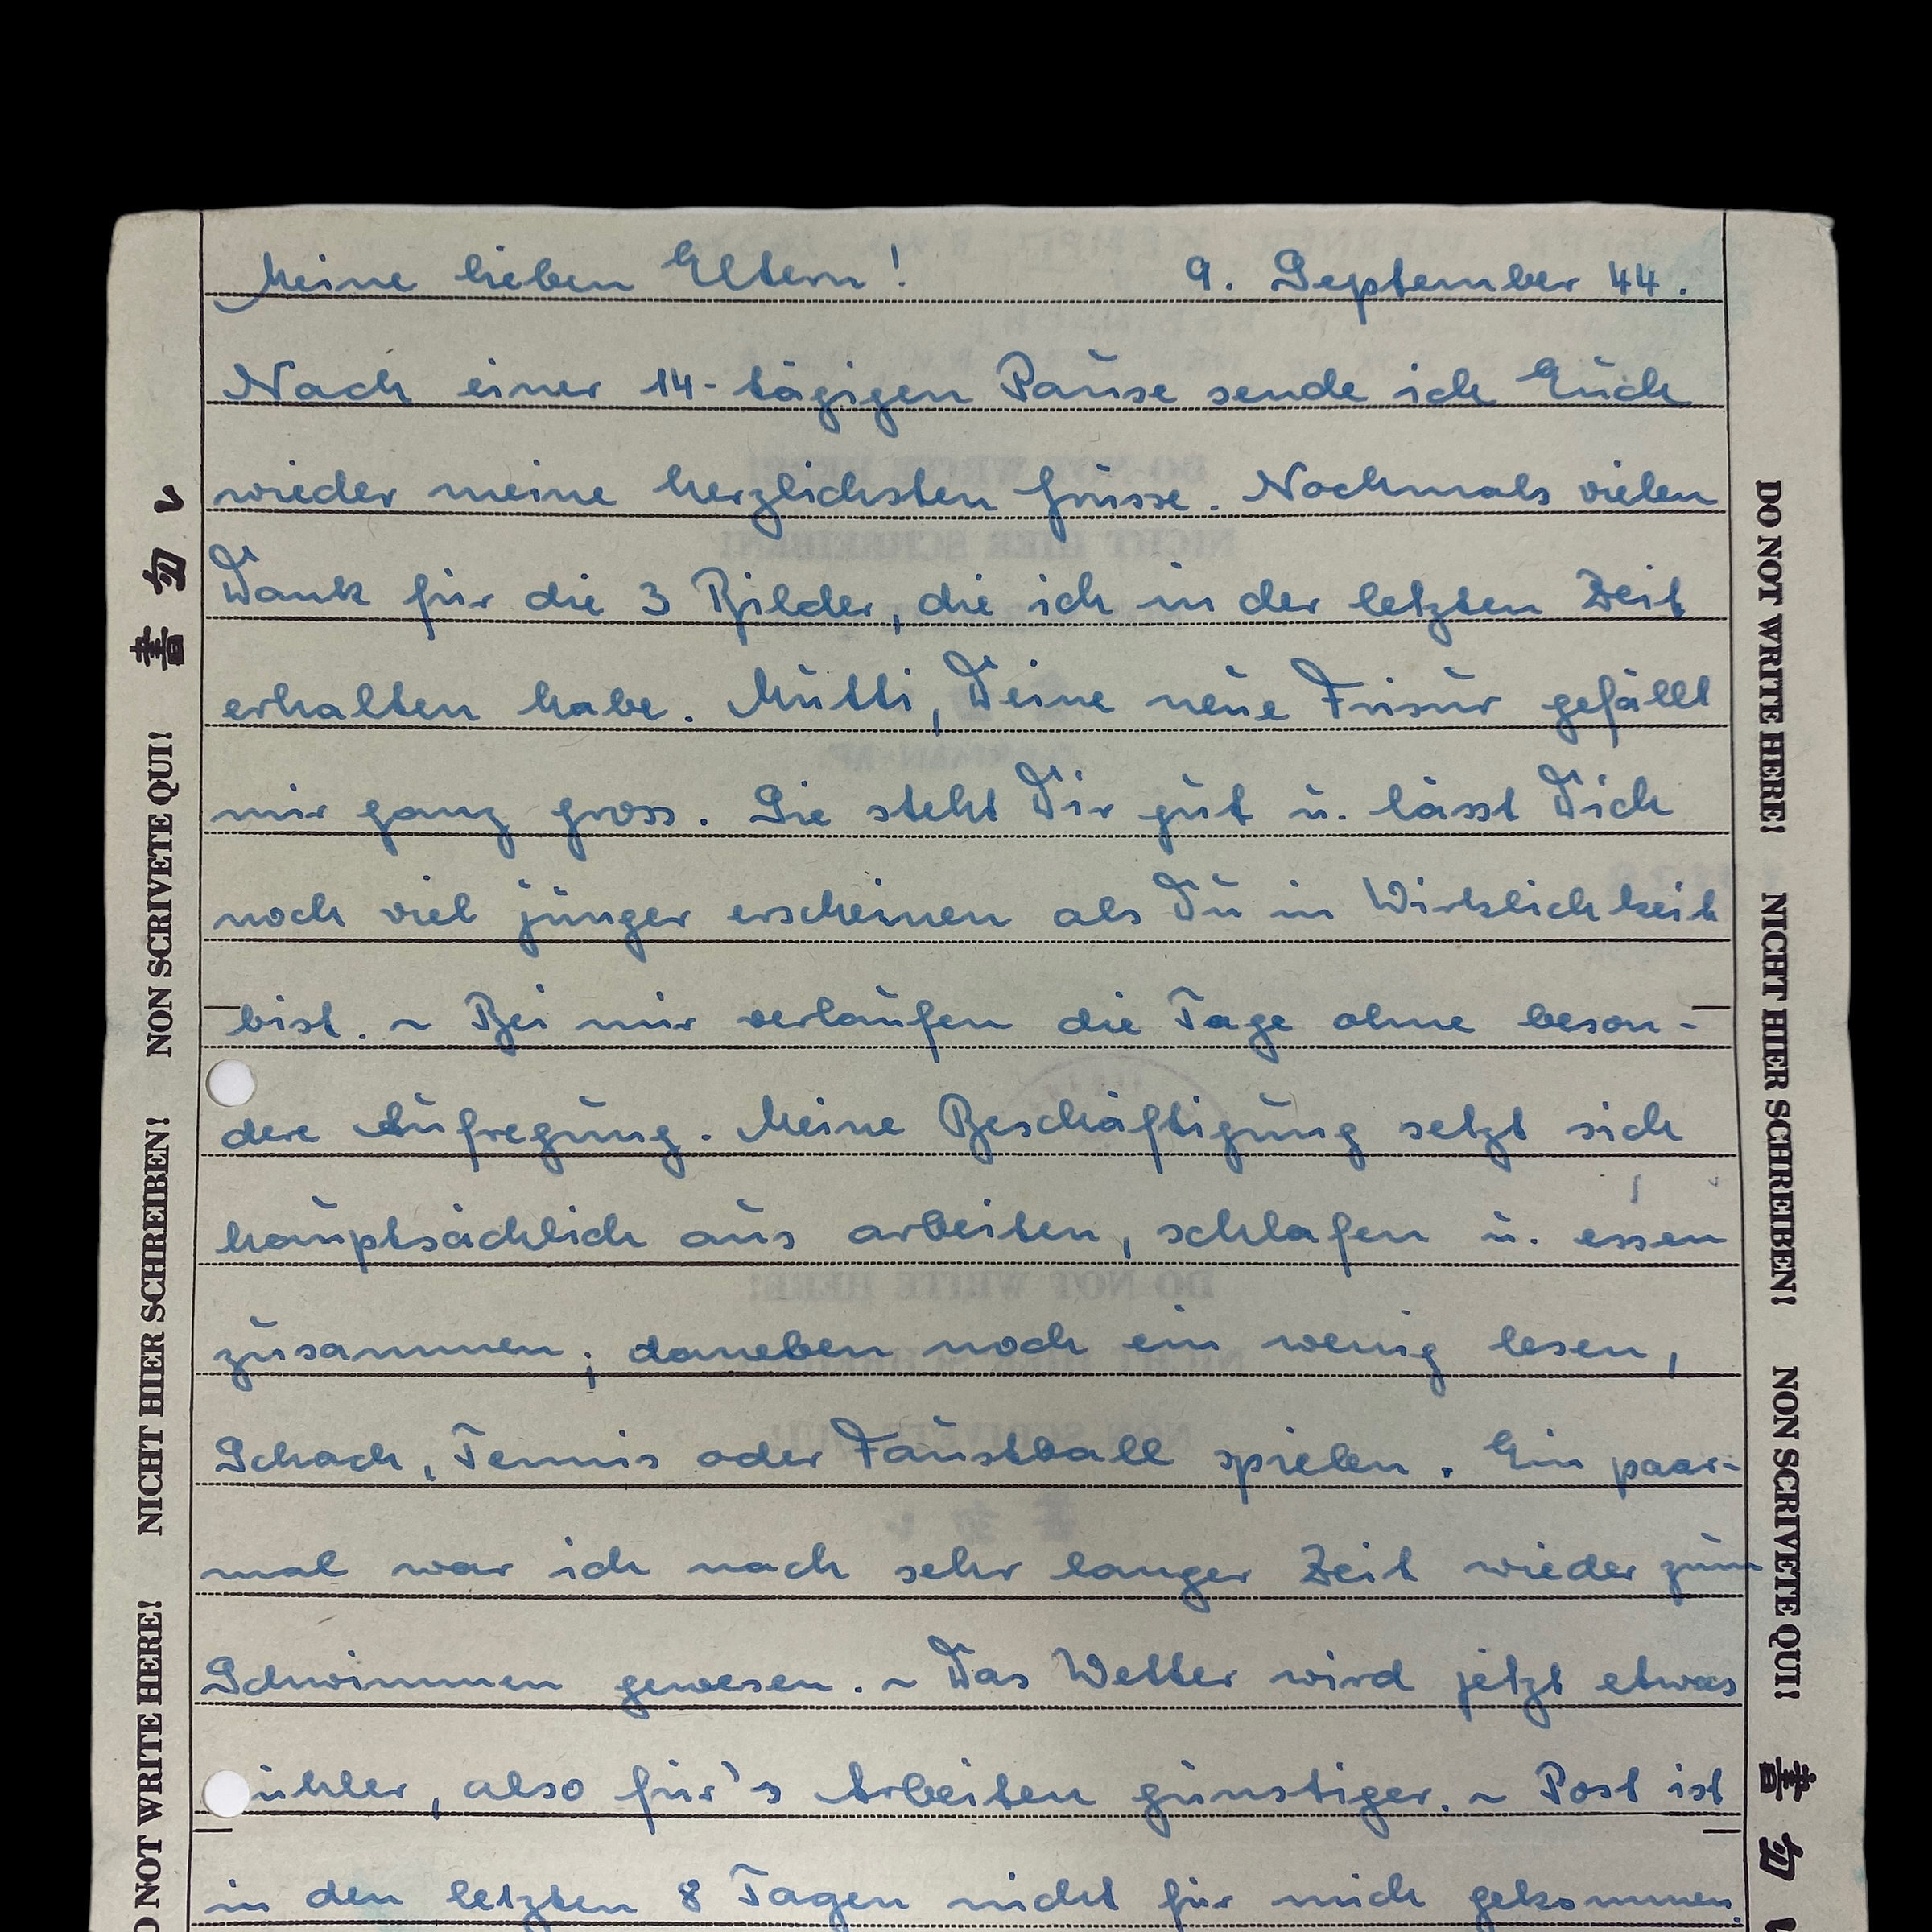 Meine lieben Eltern! 9. September 44.
Nach einer 14-tägigen Pause sende ich Euch
wieder meine herzlichsten Grüsse. Nochmals vielen
Dank für die 3 Bilder, die ich in der letzten Zeit
erhalten habe. Mutti, Deine neue Frisur gefällt
mir ganz gross. Sie steht Dir gut u. lässt Dich
noch viel jünger erscheinen als Du in Wirklichkeit
bist. ~ Bei mir verlaufen die Tage ohne beson-
dere Aufregung. Meine Beschäftigung setzt sich
hauptsächlich aus arbeiten, schlafen u. essen
zusammen; daneben noch ein wenig lesen,
Schach, Tennis oder Faustball spielen. Ein paar-
mal war ich nach sehr langer Zeit wieder zum
Schwimmen gewesen. ~ Das Wetter wird jetzt etwas
ühler, also für's Arbeiten günstiger. ~ Post ist
in den letzten 8 Tagen nicht für mich gekommen.
DO NOT WRITE HERE! NICHT HIER SCHREIBEN! NON SCRIVETE QUI! 書勿
O NOT WRITE HERE! NICHT HIER SCHREIBEN! NON SCRIVETE QUI! 書勿い
DO NOT WRITE HERE!
NICHT HIER SCHREIBEN!
DO NOT WRITE HERE!
NICHT HIER SCHREIBEN!
NON SCRIVETE QUI!
書勿い